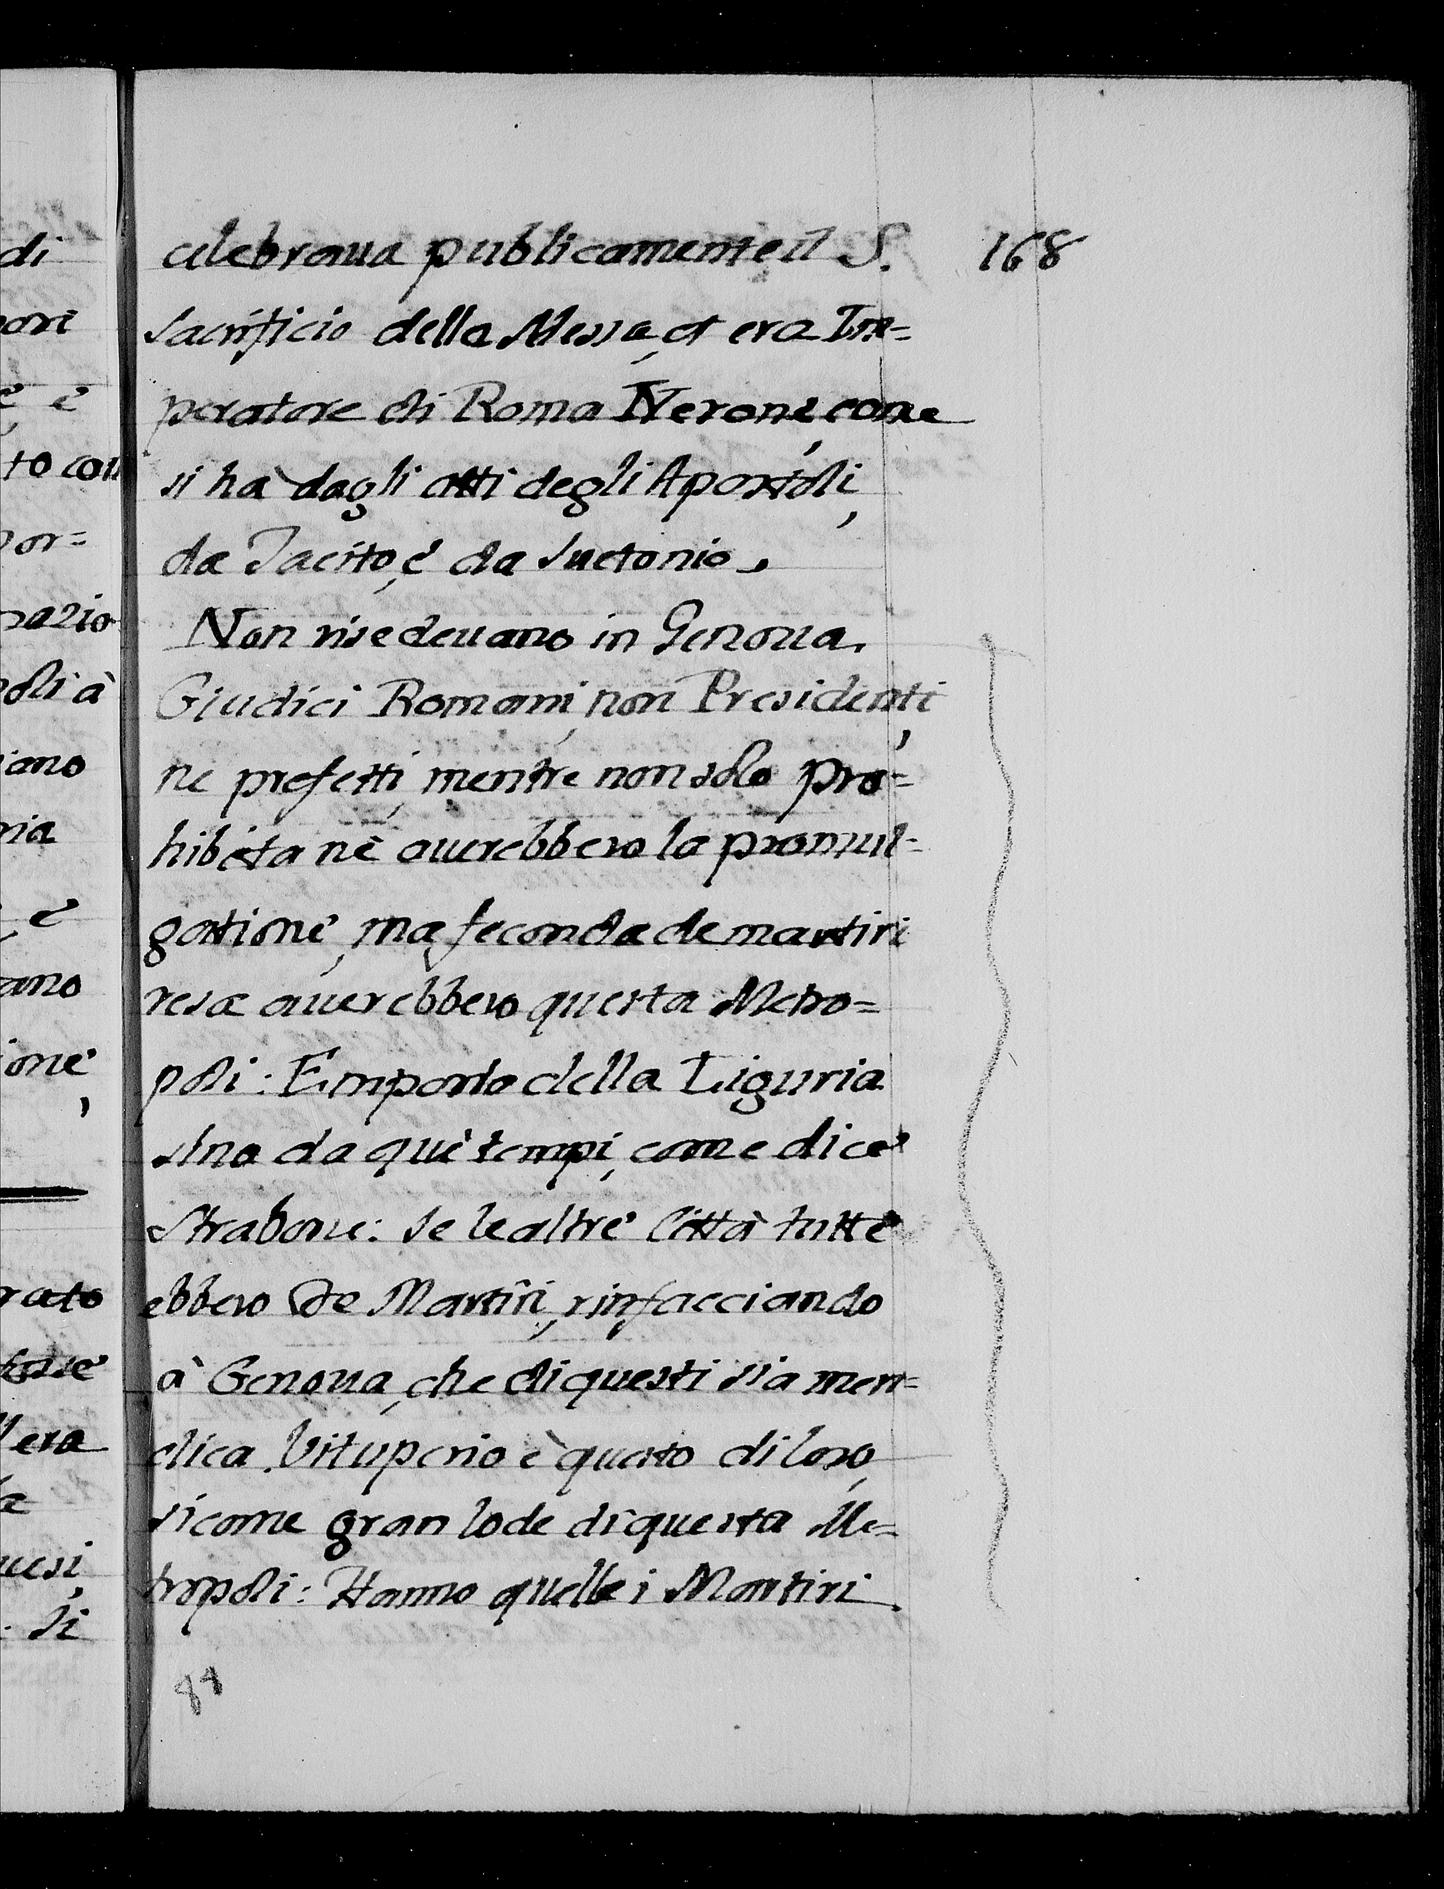 celebraua publicamente il S. 168
Sacrificio della Messa, et era Im=
peratore di Roma Nerone, come
si ha dagli atti degli Apostoli,
da Tacito, e da Suetonio.
Non risedeuano in Genoua.
Giudici Romani, non Presidenti,
ne prefetti, mentre non solo pro=
hibita nè auerebbero la promul=
gatione, ma feconda de martiri
resa auerebbero questa Metro=
poli: Emporto della Liguria
sino da què tempi, come dice
Strabone: se le altre Città tutte
ebbero de Martiri, rinfacciando
à Genoua, che di questi sia men=
dica. Vituperio è questo di loro,
sicome gran lode di questa Me=
tropoli: Hanno quelle i Martiri
84
di
è
to con
por=
pazio
poli à
iano
ria
e
ano
ione,
rato
era
la
uesi,
. Si